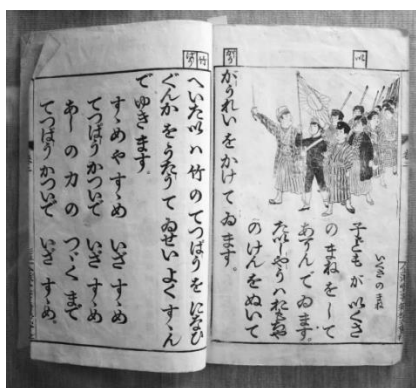 以
いくさのまね
子どもが以くさ
のまねをして
あそんでゐます。
た以しやうハおもちや
のけんをぬいて
がうれいをかけてゐます。
竹
へいた以ハ竹のてつぱうをになひ
ぐんかをうたうてゐせいよくすゝん
でゆきます。
すゝめやすゝめ いざすゝめ
てつぱうかついで いざすゝめ
あしの力の つゞくまで
てつぱうかついで いざすゝめ。